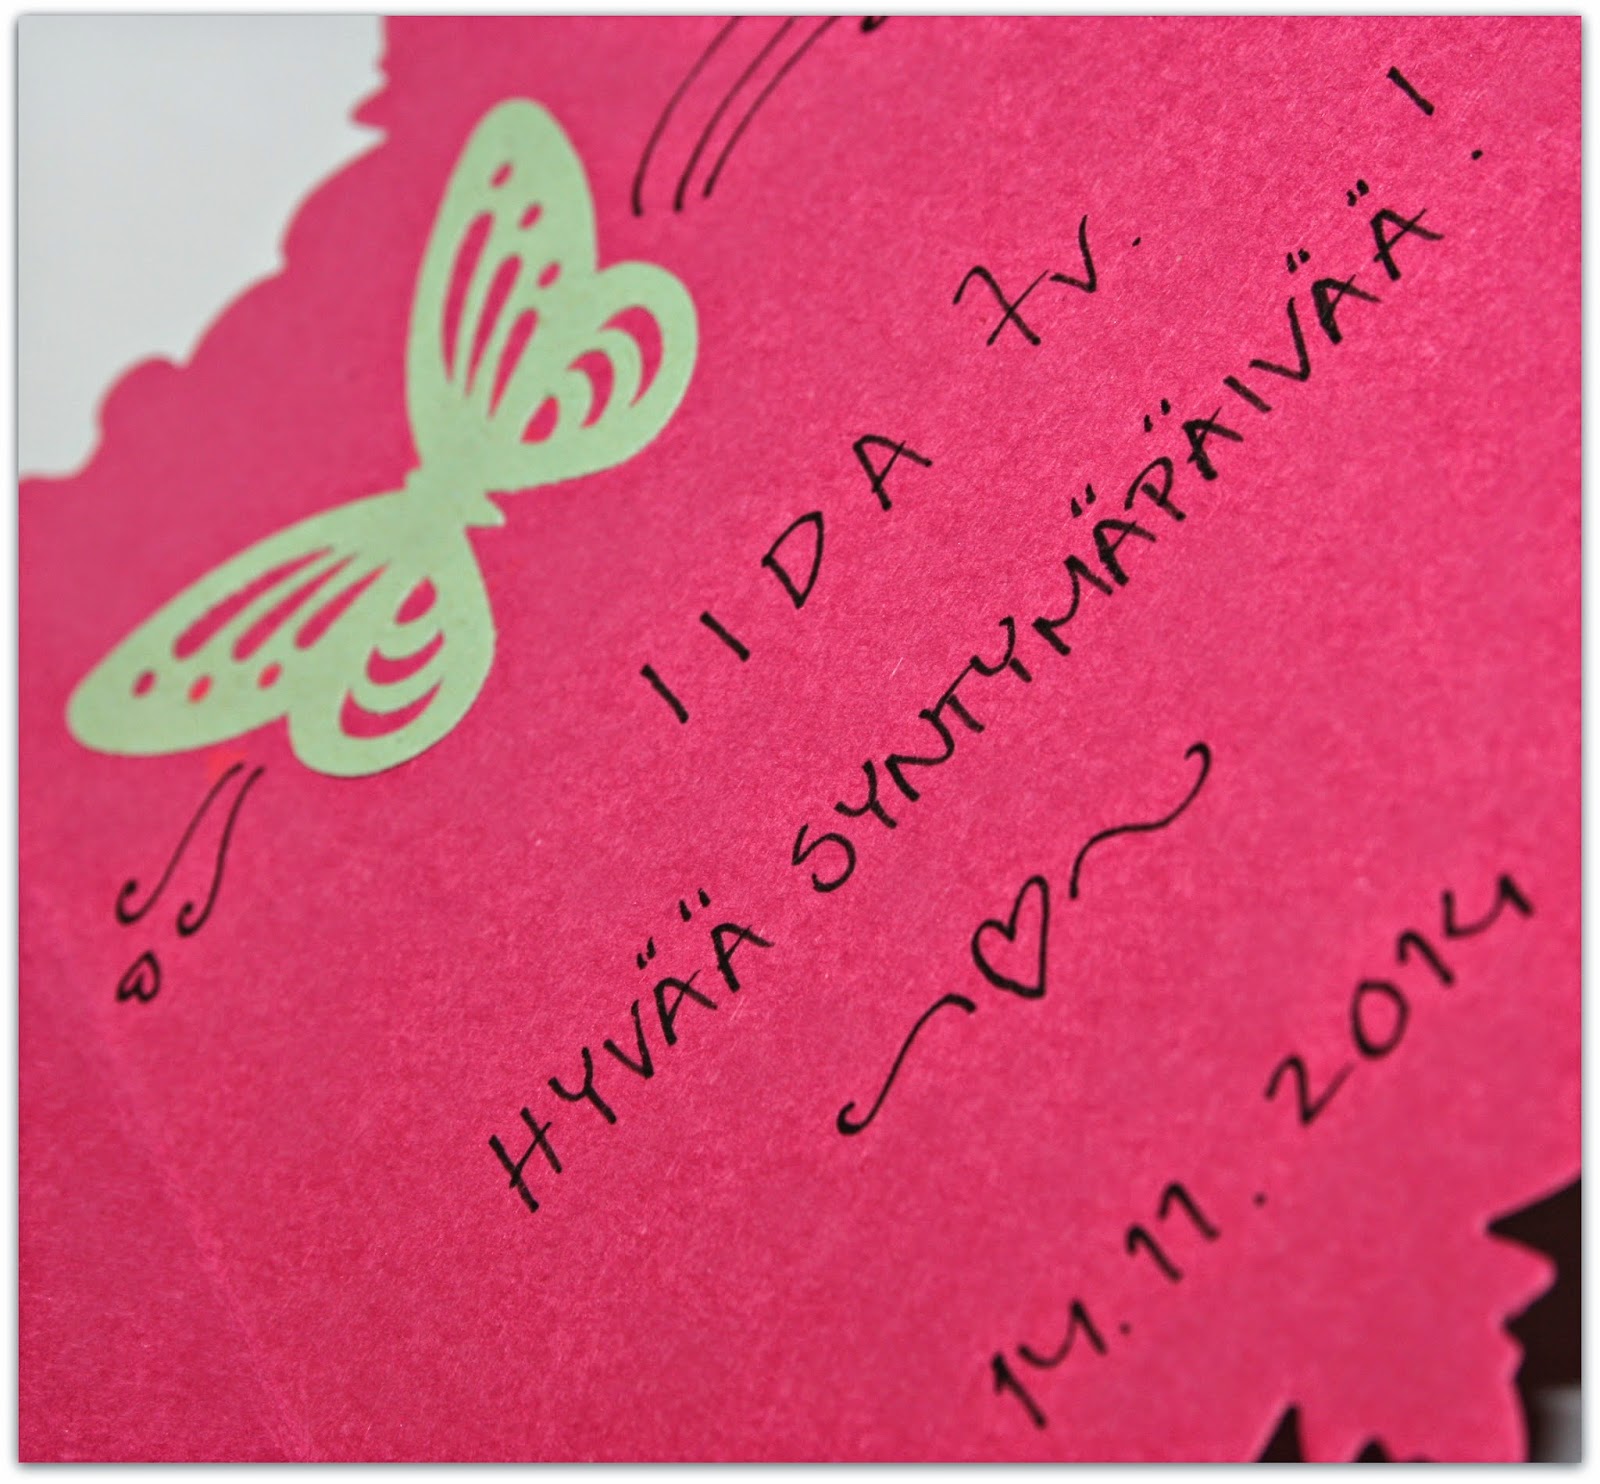 IIDA 7v.
HYVÄÄ SYNTYMÄPÄIVÄÄ!
14.11.2014